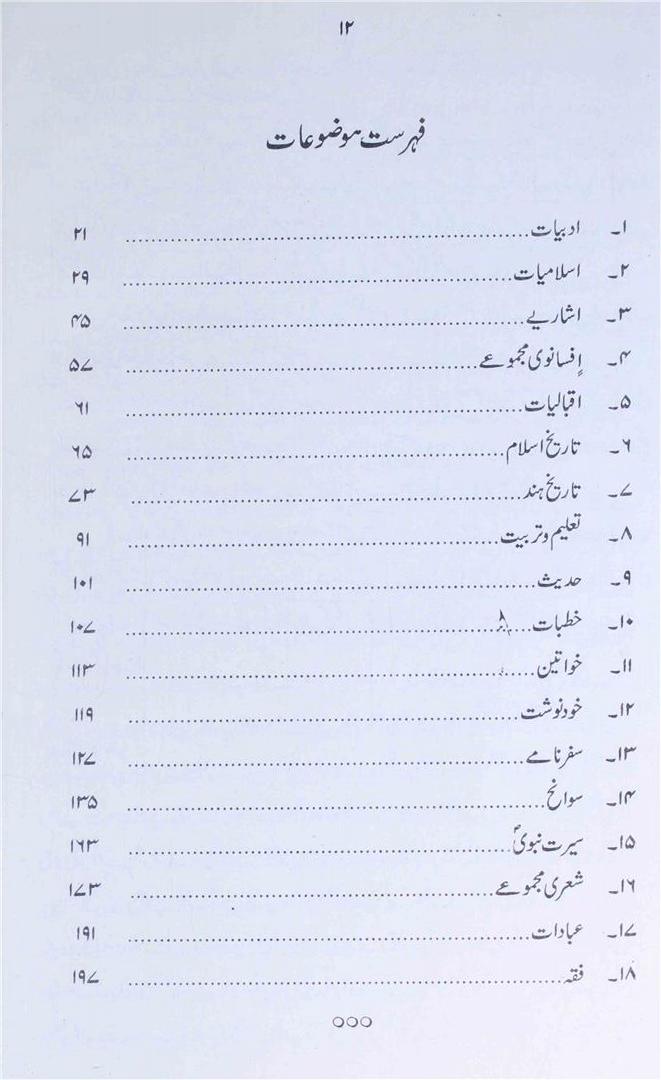 ۱۲
فہرست موضوعات
۱۔ ادبیات ........ ۲۱
۲۔ اسلامیات ........ ۲۹
۳۔ اشاریے ........ ۴۵
۴۔ اِفسانوی مجموعے ........ ۵۷
۵۔ اقبالیات ........ ۶۱
۶۔ تاریخ اسلام ........ ۶۵
۷۔ تاریخ ہند ........ ۷۳
۸۔ تعلیم و تربیت ........ ۹۱
۹۔ حدیث ........ ۱۰۱
۱۰۔ خطبات ........ ۱۰۷
۱۱۔ خواتین ........ ۱۱۳
۱۲۔ خودنوشت ........ ۱۱۹
۱۳۔ سفرنامے ........ ۱۲۷
۱۴۔ سوانح ........ ۱۳۵
۱۵۔ سیرت نبویؐ ........ ۱۶۳
۱۶۔ شعری مجموعے ........ ۱۷۳
۱۷۔ عبادات ........ ۱۹۱
۱۸۔ فقہ ........ ۱۹۷
○○○